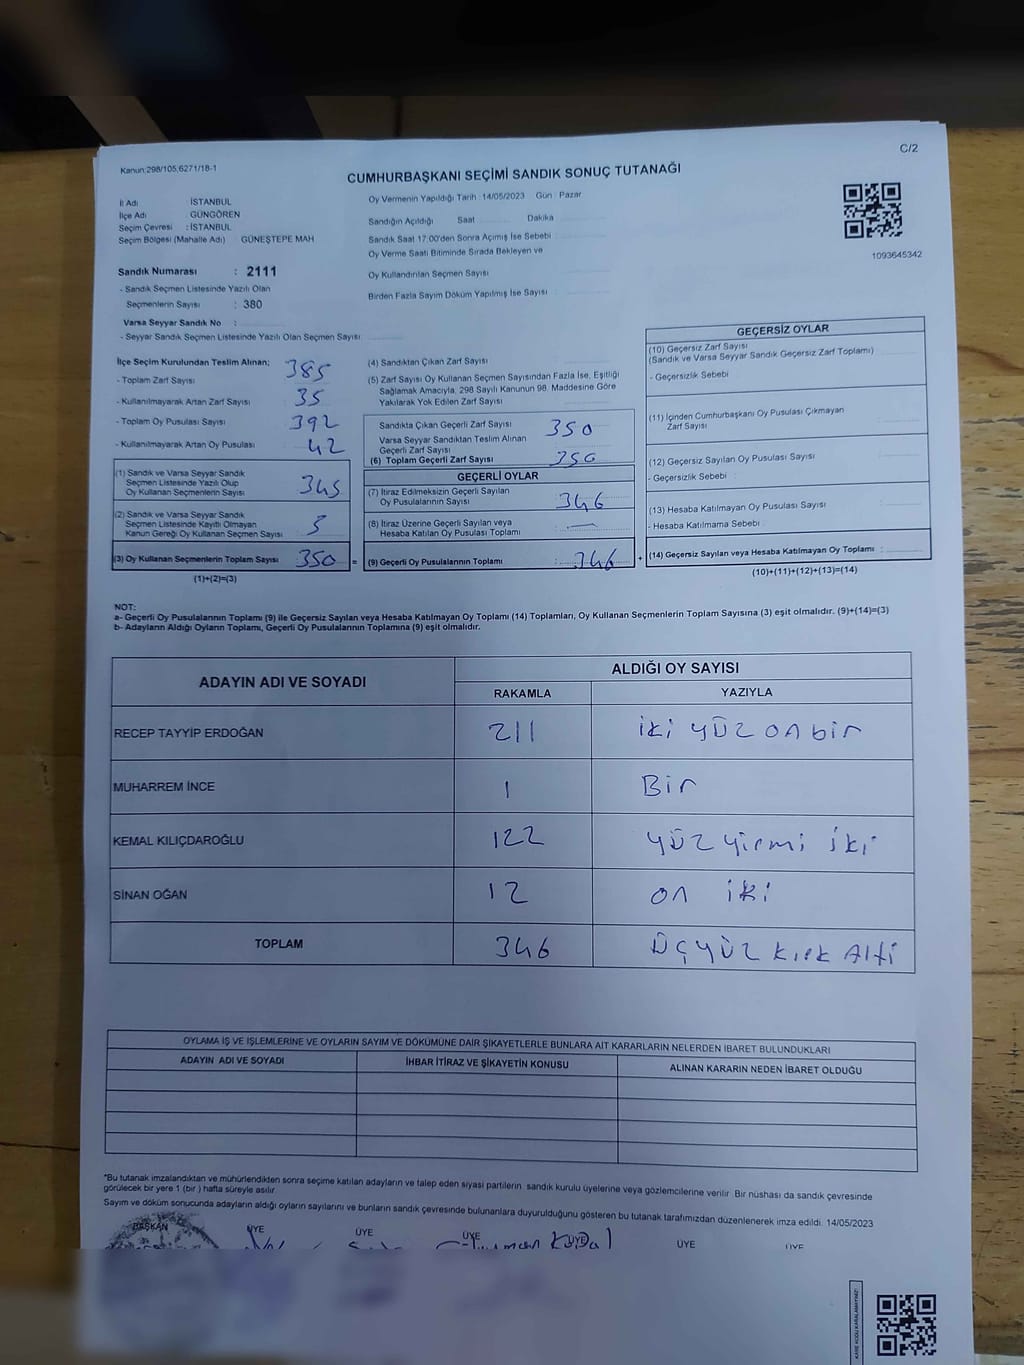 C/2
Kanun:298/105,6271/18-1
CUMHURBAŞKANI SEÇİMİ SANDIK SONUÇ TUTANAĞI
İl Adı İSTANBUL
İlçe Adı GÜNGÖREN
Seçim Çevresi : İSTANBUL
Seçim Bölgesi (Mahalle Adı) GÜNEŞTEPE MAH
Sandık Numarası : 2111
- Sandık Seçmen Listesinde Yazılı Olan
Seçmenlerin Sayısı : 380
Varsa Seyyar Sandık No :
- Seyyar Sandık Seçmen Listesinde Yazılı Olan Seçmen Sayısı
Oy Vermenin Yapıldığı Tarih : 14/05/2023 Gün : Pazar
Sandığın Açıldığı Saat Dakika
Sandık Saat 17:00'den Sonra Açımış İse Sebebi :
Oy Verme Saati Bitiminde Sırada Bekleyen ve
Oy Kullandırılan Seçmen Sayısı
Birden Fazla Sayım Döküm Yapılmış İse Sayısı :
1093645342
İlçe Seçim Kurulundan Teslim Alınan;
- Toplam Zarf Sayısı 385
- Kullanılmayarak Artan Zarf Sayısı 35
- Toplam Oy Pusulası Sayısı 392
- Kullanılmayarak Artan Oy Pusulası 42
(1) Sandık ve Varsa Seyyar Sandık
Seçmen Listesinde Yazılı Olup
Oy Kullanan Seçmenlerin Sayısı 345
(2) Sandık ve Varsa Seyyar Sandık
Seçmen Listesinde Kayıtlı Olmayan
Kanun Gereği Oy Kullanan Seçmen Sayısı
(3) Oy Kullanan Seçmenlerin Toplam Sayısı 350 =
(1)+(2)=(3)
(4) Sandıktan Çıkan Zarf Sayısı
(5) Zarf Sayısı Oy Kullanan Seçmen Sayısından Fazla İse, Eşitliği
Sağlamak Amacıyla, 298 Sayılı Kanunun 98. Maddesine Göre
Yakılarak Yok Edilen Zarf Sayısı
Sandıkta Çıkan Geçerli Zarf Sayısı 350
Varsa Seyyar Sandıktan Teslim Alınan
Geçerli Zarf Sayısı
(6) Toplam Geçerli Zarf Sayısı 350
GEÇERLİ OYLAR
(7) İtiraz Edilmeksizin Geçerli Sayılan
Oy Pusulalarının Sayısı 346
(8) İtiraz Üzerine Geçerli Sayılan veya
Hesaba Katılan Oy Pusulası Toplamı —
(9) Geçerli Oy Pusulalarının Toplamı : 346 +
GEÇERSİZ OYLAR
(10) Geçersiz Zarf Sayısı
(Sandık ve Varsa Seyyar Sandık Geçersiz Zarf Toplamı)
- Geçersizlik Sebebi :
(11) İçinden Cumhurbaşkanı Oy Pusulası Çıkmayan
Zarf Sayısı :
(12) Geçersiz Sayılan Oy Pusulası Sayısı :
- Geçersizlik Sebebi :
(13) Hesaba Katılmayan Oy Pusulası Sayısı :
- Hesaba Katılmama Sebebi :
(14) Geçersiz Sayılan veya Hesaba Katılmayan Oy Toplamı :
(10)+(11)+(12)+(13)=(14)
NOT:
a- Geçerli Oy Pusulalarının Toplamı (9) ile Geçersiz Sayılan veya Hesaba Katılmayan Oy Toplamı (14) Toplamları, Oy Kullanan Seçmenlerin Toplam Sayısına (3) eşit olmalıdır. (9)+(14)=(3)
b- Adayların Aldığı Oyların Toplamı, Geçerli Oy Pusulalarının Toplamına (9) eşit olmalıdır.
ADAYIN ADI VE SOYADI ALDIĞI OY SAYISI
RAKAMLA YAZIYLA
RECEP TAYYİP ERDOĞAN 211 iki yüz on bir
MUHARREM İNCE 1 Bir
KEMAL KILIÇDAROĞLU 122 yüz yirmi iki
SİNAN OĞAN 12 on iki
TOPLAM 346 üçyüz kırk Altı
OYLAMA İŞ VE İŞLEMLERİNE VE OYLARIN SAYIM VE DÖKÜMÜNE DAİR ŞİKAYETLERLE BUNLARA AİT KARARLARIN NELERDEN İBARET BULUNDUKLARI
ADAYIN ADI VE SOYADI İHBAR İTİRAZ VE ŞİKAYETİN KONUSU ALINAN KARARIN NEDEN İBARET OLDUĞU
*Bu tutanak imzalandıktan ve mühürlendikten sonra seçime katılan adayların ve talep eden siyasi partilerin sandık kurulu üyelerine veya gözlemcilerine verilir. Bir nüshası da sandık çevresinde
görülecek bir yere 1 (bir ) hafta süreyle asılır.
Sayım ve döküm sonucunda adayların aldığı oyların sayılarını ve bunların sandık çevresinde bulunanlara duyurulduğunu gösteren bu tutanak tarafımızdan düzenlenerek imza edildi. 14/05/2023
BAŞKAN ÜYE ÜYE ÜYE ÜYE ÜYE ÜYE